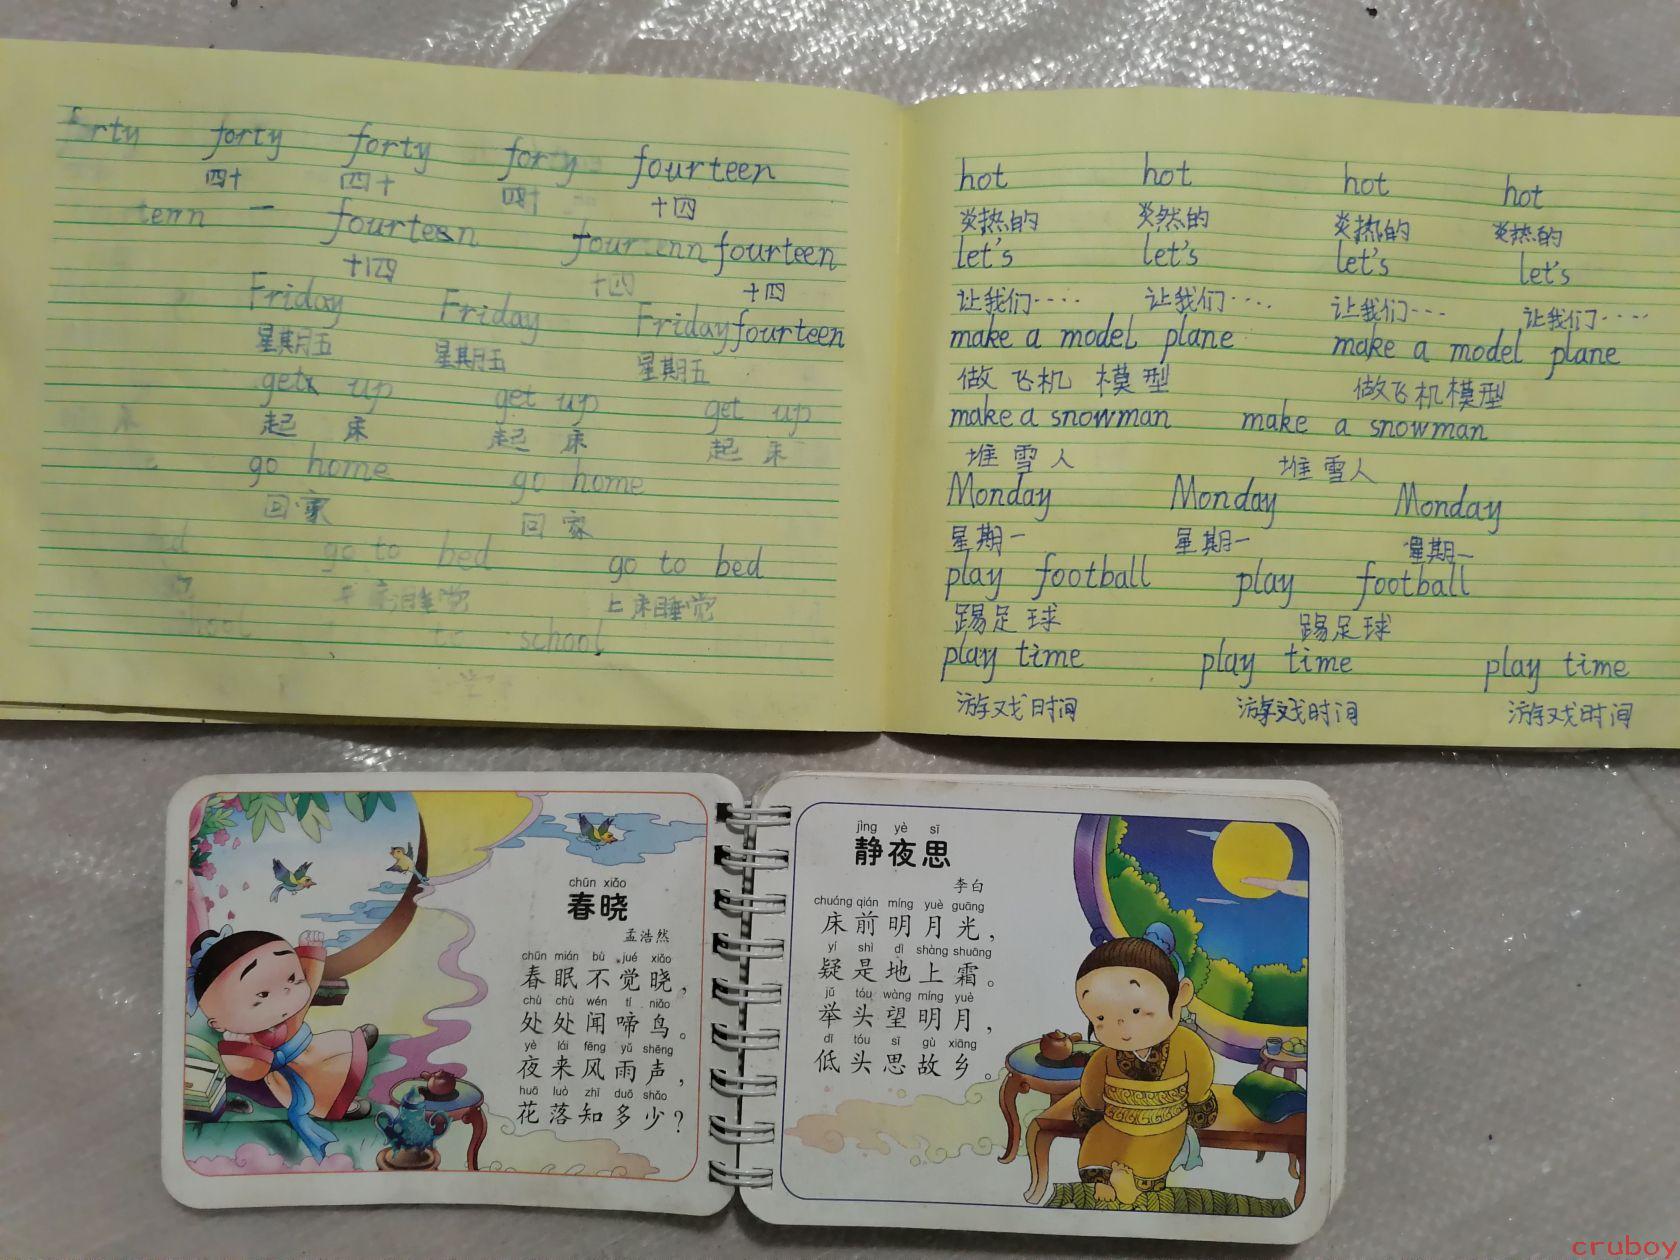 forty forty forty fourteen
四十 四十 四十 十四
fourteen fourteen
十四 十四 十四
Friday Friday Friday fourteen
星期五 星期五 星期五
get up get up get up
起 床 起 床 起 床
go home go home
回家 回 家
go to bed go to bed
上床睡觉 上床睡觉
to school
hot hot hot hot
炎热的 炎然的 炎热的 炎热的
let's let's let's let's
让我们····· 让我们···· 让我们··· 让我们·····
make a model plane make a model plane
做飞机 模型 做飞机模型
make a snowman make a snowman
堆雪人 堆雪人
Monday Monday Monday
星期一 星期一 星期一
play football play football
踢足球 踢足球
play time play time play time
游戏时间 游戏时间 游戏时间
chūn xiǎo
春晓
孟浩然
chūn mián bù jué xiǎo
春眠不觉晓，
chù chù wén tí niǎo
处处闻啼鸟。
yè lái fēng yǔ shēng
夜来风雨声，
huā luò zhī duō shǎo
花落知多少？
jìng yè sī
静夜思
李白
chuáng qián míng yuè guāng
床前明月光，
yí shì dì shàng shuāng
疑是地上霜。
jǔ tóu wàng míng yuè
举头望明月，
dī tóu sī gù xiāng
低头思故乡。
cruboy